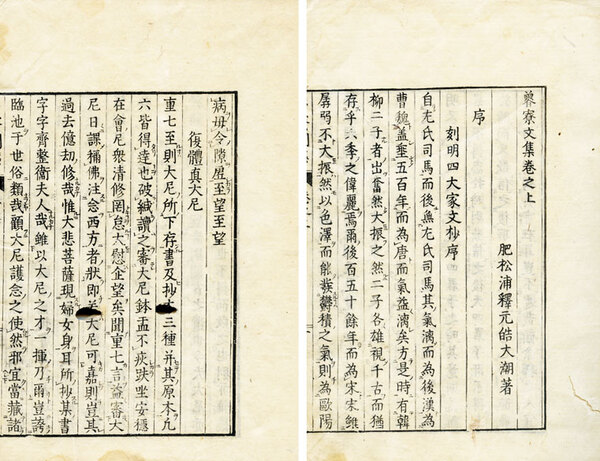 寮文集卷之上
肥松浦釋元皓大潮著
序
刻明四大家文抄序
自左氏司馬而後無左氏司馬其氣漓而為後漢為
曹魏蓋垂五百年而為唐而氣益漓矣方是時有韓
柳二子者出奮然大振之然二子各雄視千古而猶
存乎六季之偉麗焉爾後百五十餘年而為宋宋雖
孱弱不大振然以色澤而能發鬱積之氣則為歐陽
病毋令隙屋至望至望
復體真大尼
重七至則大尼所下存書及抄三種并其原本凡
六皆得達也破緘讀之審大尼鉢盂不疾趺坐安穩
在會尼衆清修罔怠大慰企望矣聞重七言益審大
尼日課稱佛注念西方者狀即大尼可嘉則豈其
過去億劫修哉惟大悲菩薩現婦女身耳所抄某書
字字齊整衛夫人哉雖以大尼之才一揮乃爾豈誇
臨池于世俗類哉顧大尼護念之使然邪宜當藏諸